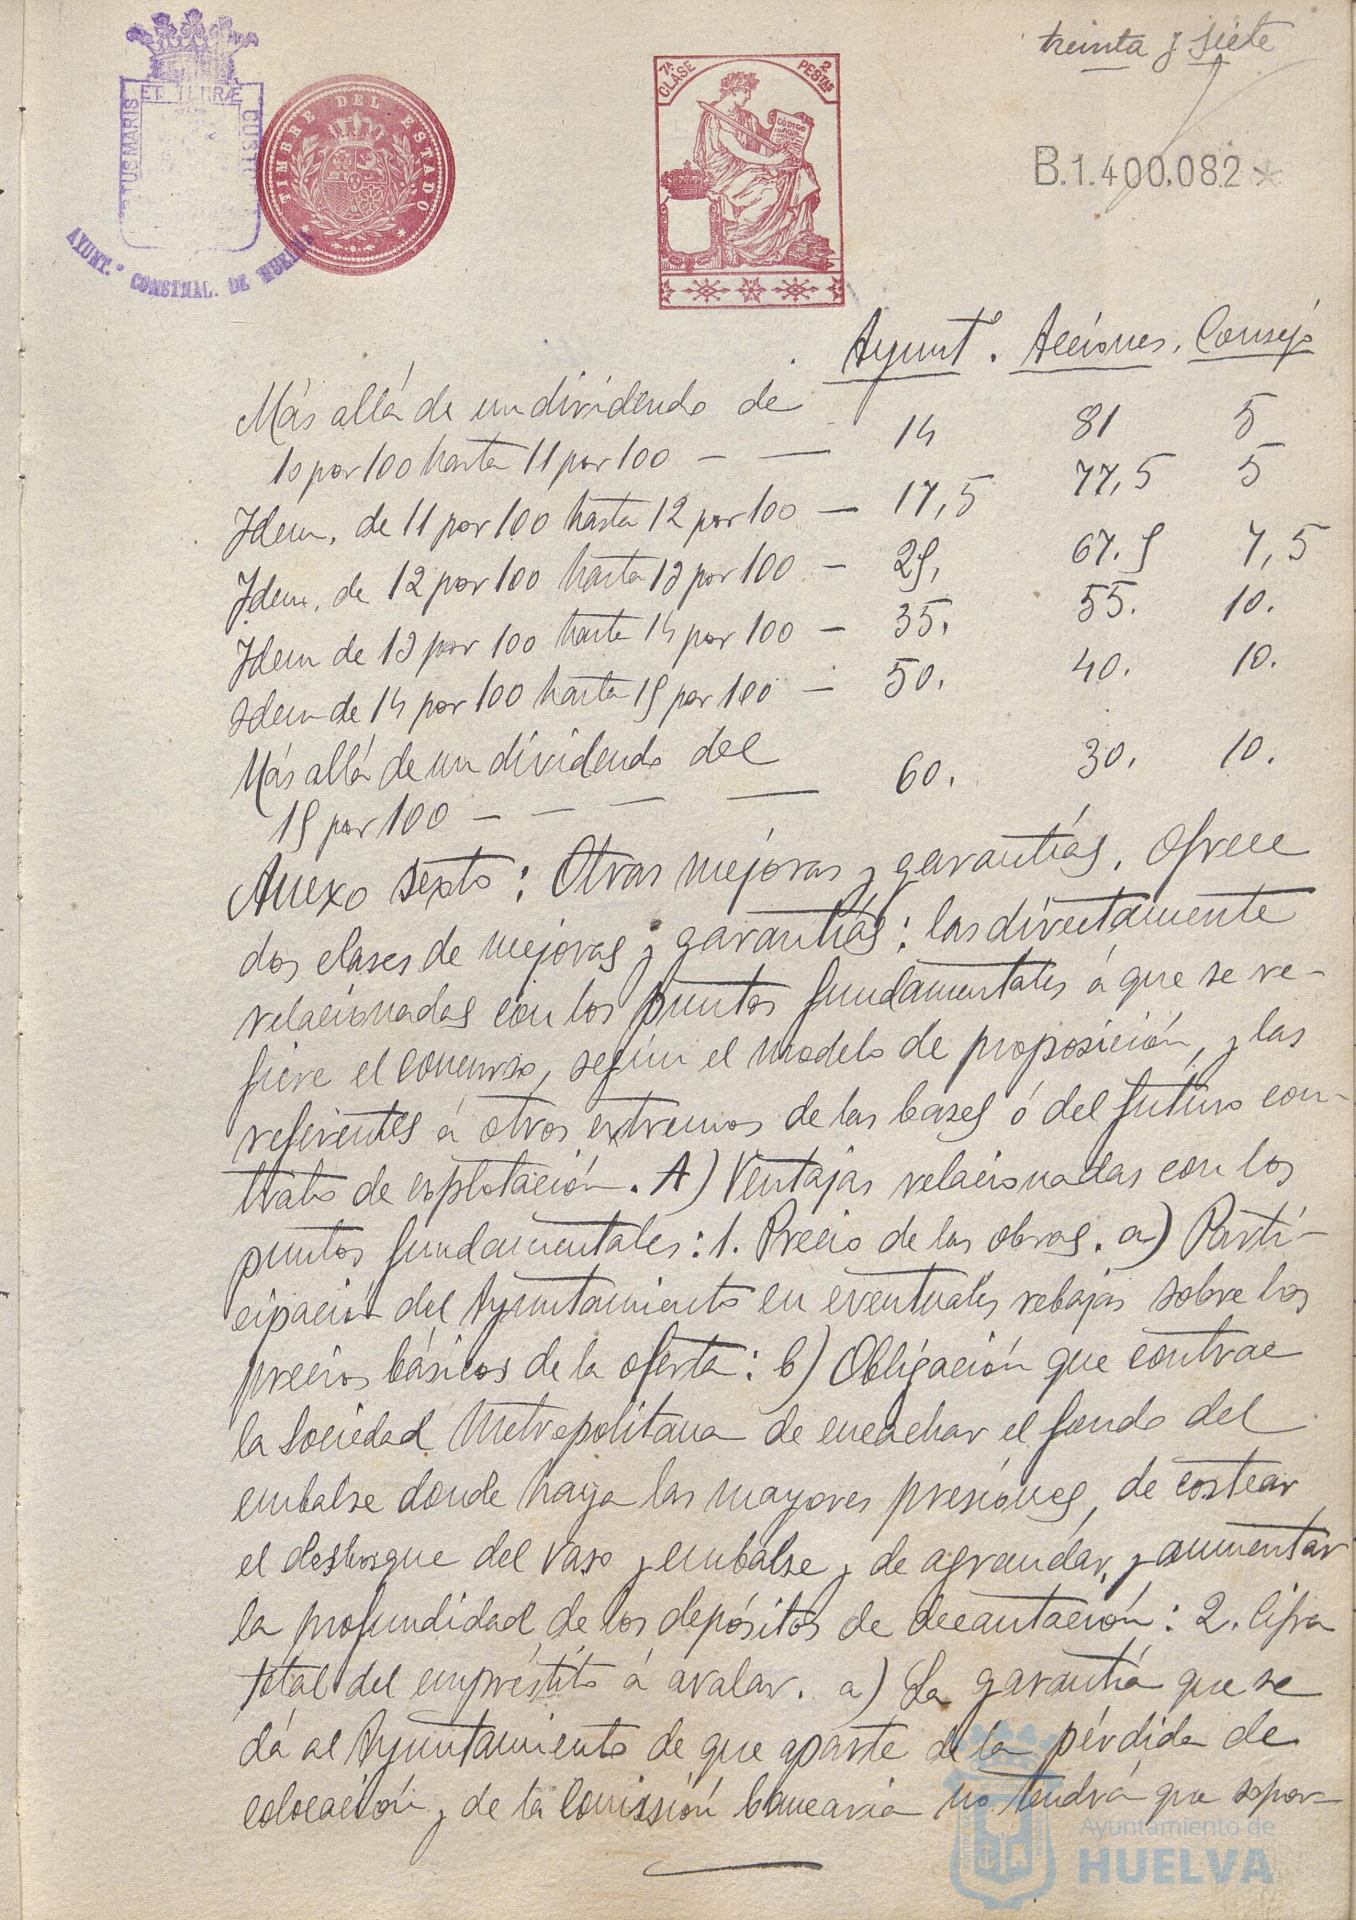 treinta y siete
ET TERRÆ
TUS MARIS
CUST
AYUNT.º CONSTNAL. DE HUELVA
TIMBRE DEL ESTADO
7ª CLASE
2 PESTAS
CODIGO
B.1.400.082*
Ayuntº. Acciones. Consejo
Más allá de un dividendo de
10 por 100 hasta 11 por 100 — — 14 81 5
Idem. de 11 por 100 hasta 12 por 100 — 17,5 77,5 5
Idem. de 12 por 100 hasta 13 por 100 — 25, 67.5 7,5
Idem de 13 por 100 hasta 14 por 100 — 35. 55. 10.
Idem de 14 por 100 hasta 15 por 100 — 50. 40. 10.
Más allá de un dividendo del
15 por 100 — — — — 60. 30. 10.
Anexo sexto: Otras mejoras y garantías. Ofrece
dos clases de mejoras y garantías: las directamente
relacionadas con los puntos fundamentales á que se re-
fiere el concurso, según el modelo de proposición, y las
referentes á otros extremos de las bases ó del futuro con-
trato de explotación. A) Ventajas relacionadas con los
puntos fundamentales: 1. Precio de las obras. a) Parti-
cipación del Ayuntamiento en eventuales rebajas sobre los
precios básicos de la oferta: b) Obligación que contrae
la Sociedad Metropolitana de encachar el fondo del
embalse donde haya las mayores presiones, de costear
el desbosque del vaso y embalse y de agrandar, y aumentar
la profundidad de los depósitos de decantación: 2. Cifra
total del empréstito á avalar. a) La garantía que se
dá al Ayuntamiento de que aparte de la pérdida de
colocación y de la Comisión bancaria no tendrá que sopor-
Ayuntamiento de
HUELVA